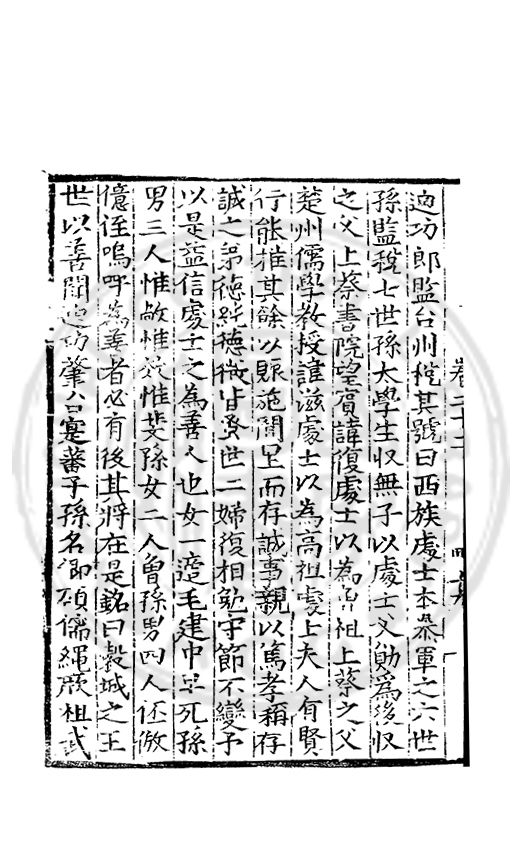 迪功郎監台州稅其號曰西族處士本叅軍之六世
孫監稅七世孫太學生収無子以處士父勛為後収
之父上蔡書院堂賓諱復處士以為曾祖上蔡之父
楚州儒學教授諱滋處士以為高祖處士夫人有賢
行能推其餘以賑施閭里而存誠事親以篤孝稱存
誠之弟德純德徵皆蚤世二婦復相勉守節不變予
以是益信處士之為善人也女一適毛建中早死孫
男三人惟敏惟效惟斐孫女二人曾孫男四人伾倣
僖侄嗚呼為善者必有後其將在是銘曰穀城之王
世以善聞迪功肇台寔蕃子孫名卿碩儒繩厥祖武
卷二十二
四